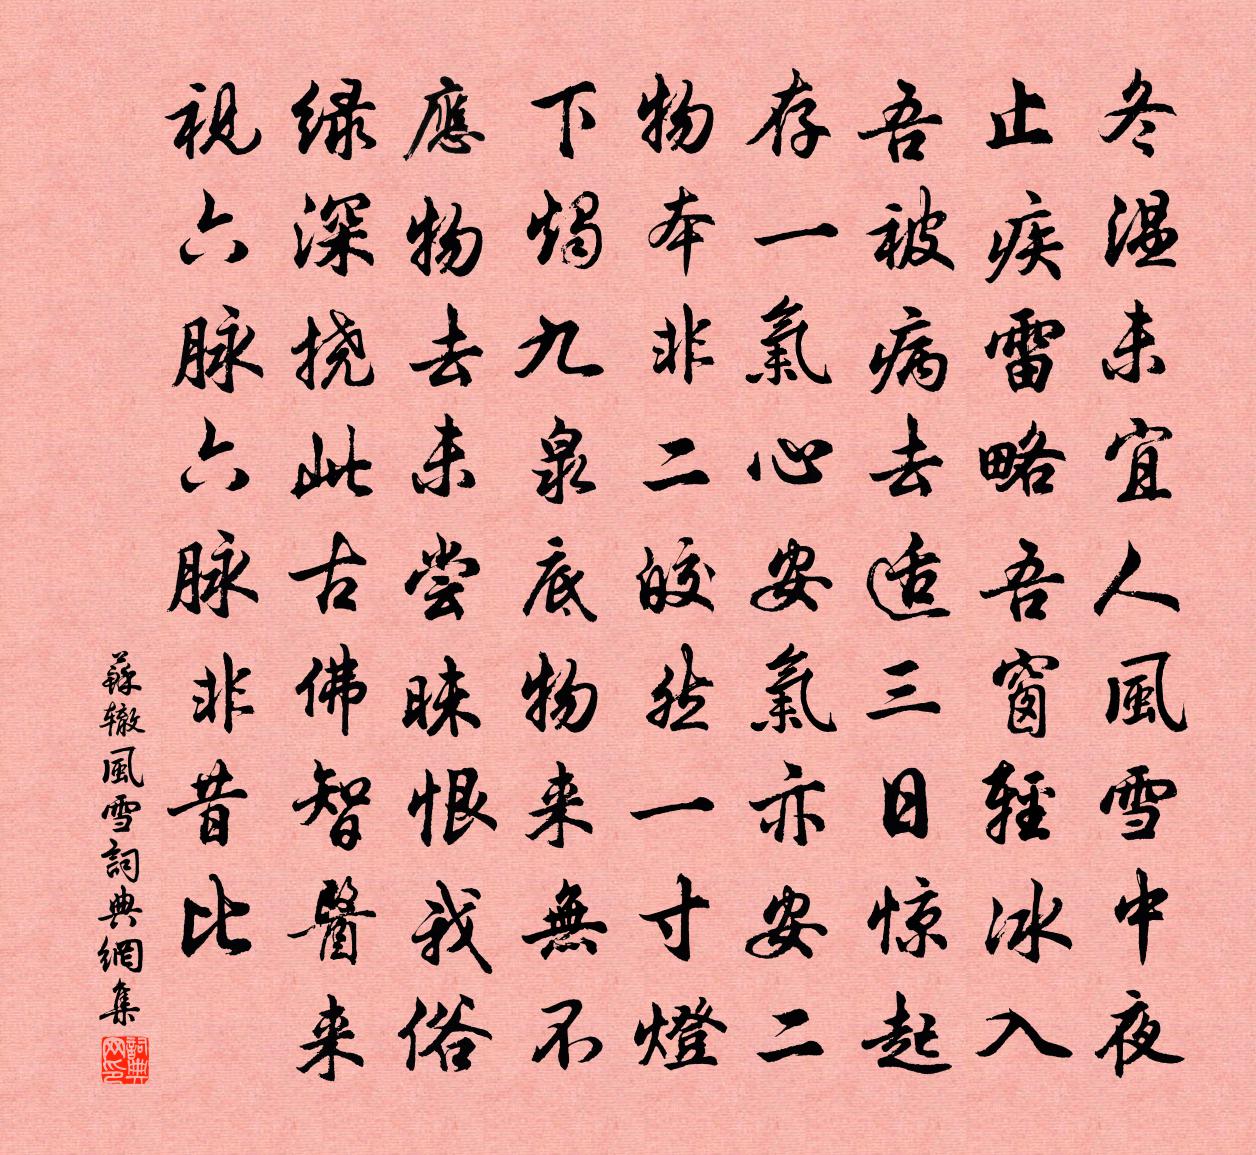 冬温未宜人風雪中夜
止疾雷略吾窗輕冰入
吾被病去适三日惊起
存一氣心安氣亦安二
物本非二皎然一寸燈
下燭九泉底物来無不
應物去未尝昧恨我俗
绿深挠此古佛智醫来
視六脉六脉非昔比
蘇辙風雪詞典網集
詞典网印